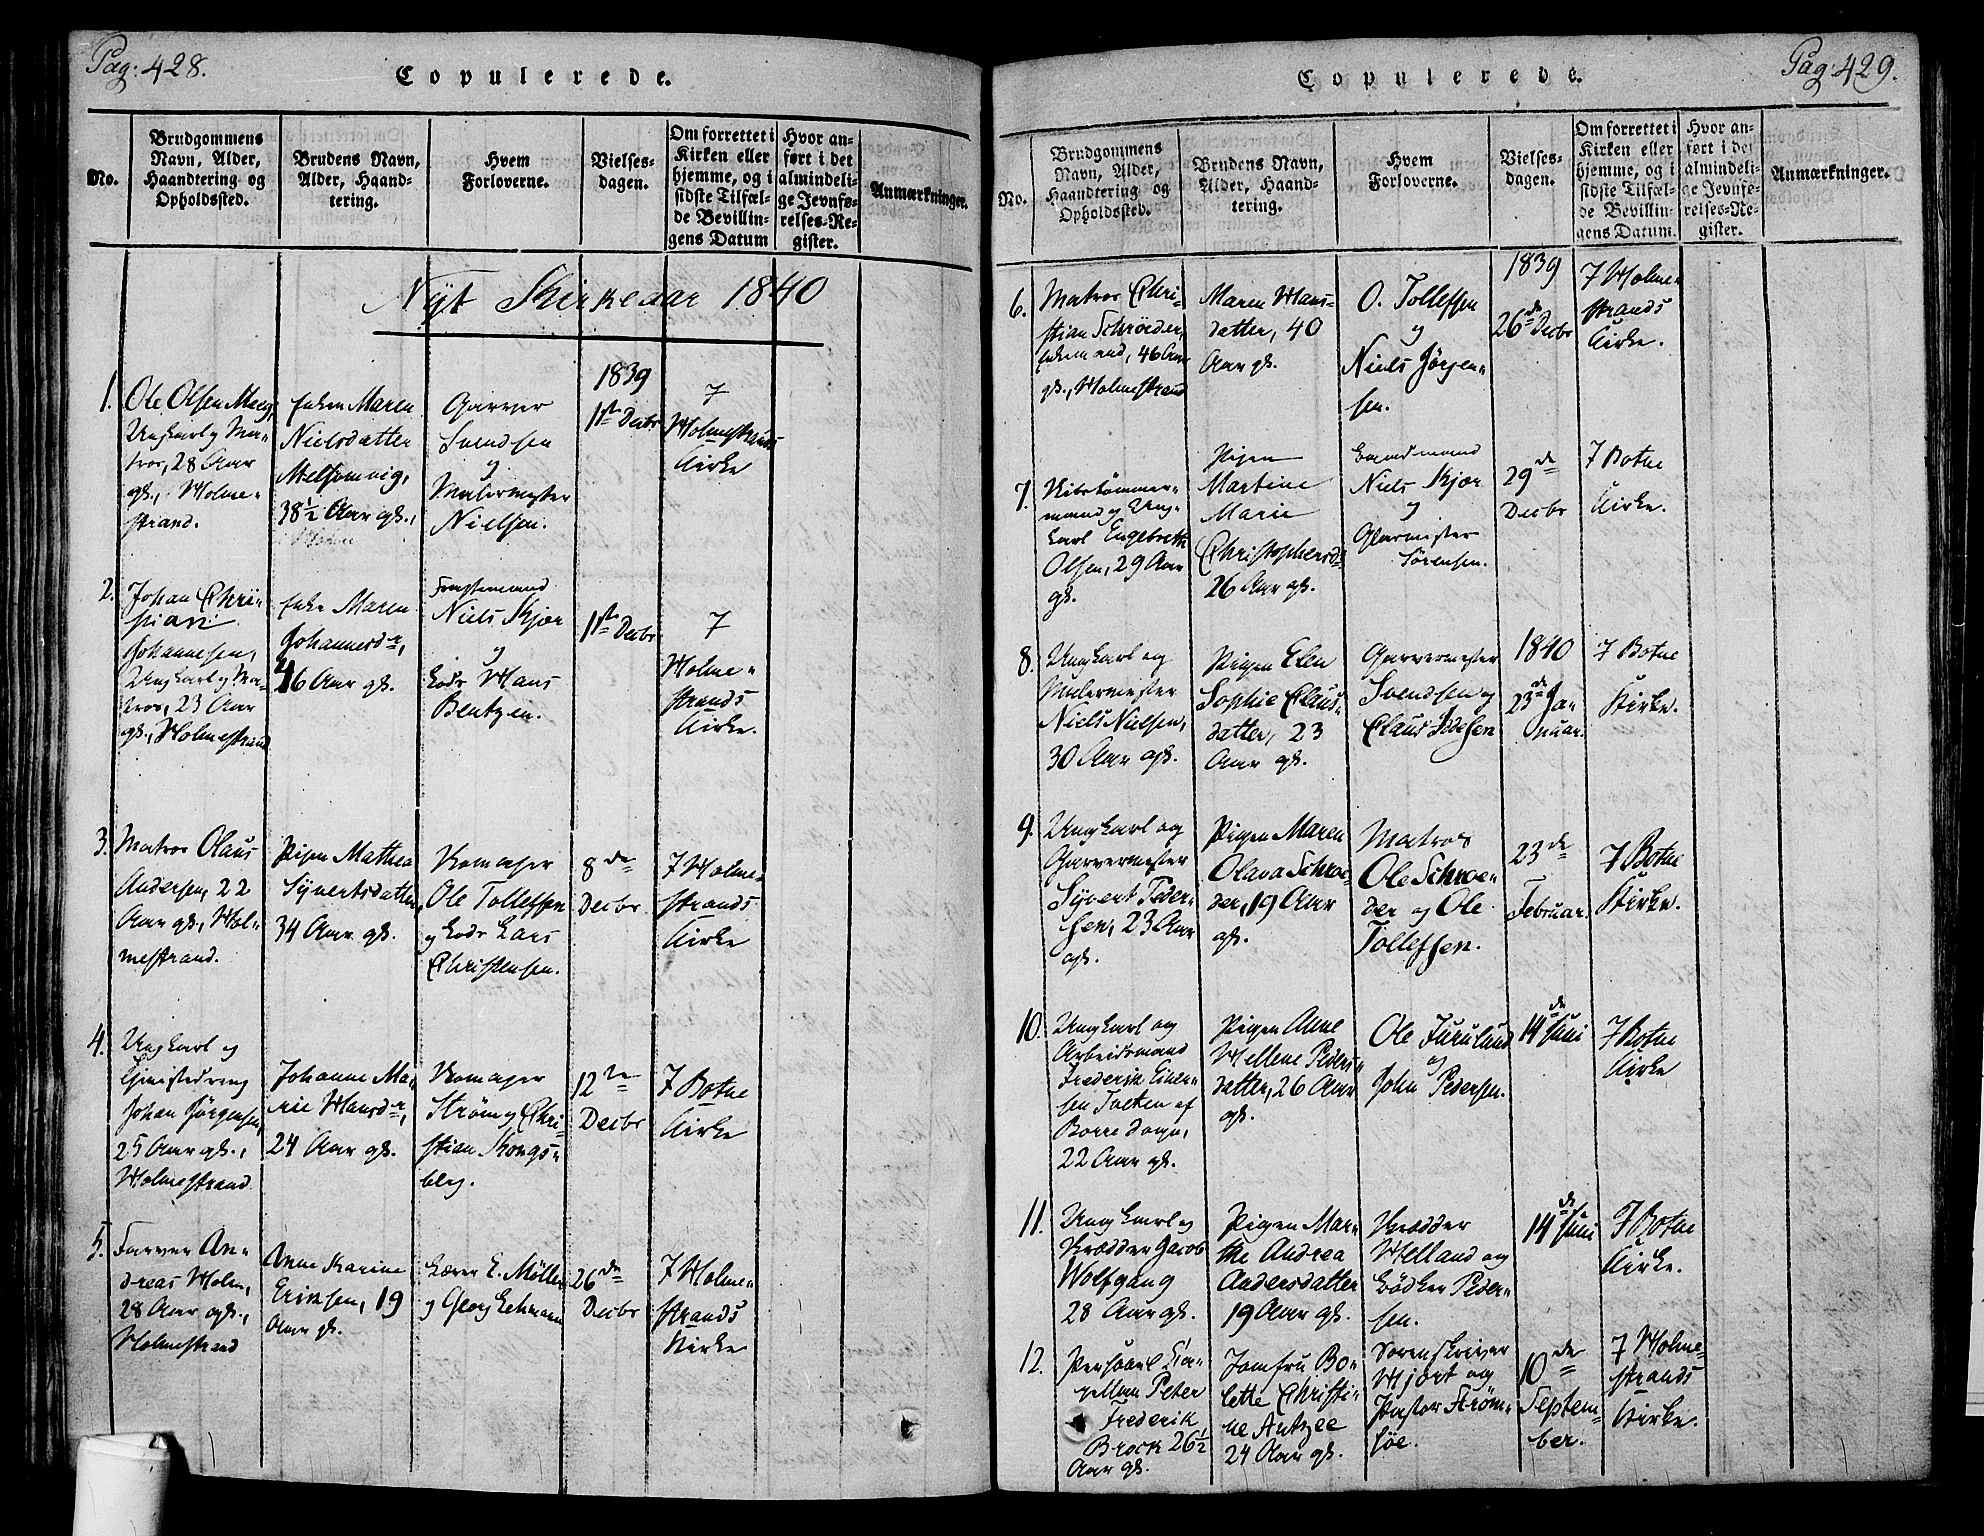 Pag: 428.
Copulerede.
No.
Brudgommens
Navn, Alder,
Haandtering og
Opholdssted.
Brudens Navn,
Alder, Haand-
tering.
Hvem
Forloverne.
Vielses-
dagen.
Om forrettet i
Kirken eller
hjemme, og i
sidste Tilfæl-
de Bevillin-
gens Datum
Hvor an-
ført i det
almindeli-
ge Jevnfø-
relses-Re-
gister.
Anmærkninger.
Nyt Kirkeaar 1840
1.
Ole Olsen
Ungkarl og Ma-
tros, 28 Aar
gl., Holme-
strand.
Enken Maren
Nielsdatter
38 1/2 Aar gl.,
Garver
Svendsen
og
Malermester
Nielsen.
1839
1ste Decbr
7
Holmestrands
Kirke
2.
Johan Chri-
stian
Johannesen,
Ungkarl og Ma-
tros, 23 Aar
gl., Holmestrand
Enke Maren
Johannesdr,
46 Aar gl.
Niels Kjær
og
Lods Hans
Bentzen.
1ste Decbr
7
Holme-
strands
Kirke.
3.
Matros Olaus
Andersen, 22
Aar gl., Hol-
mestrand.
Pigen Mathea
Syvertsdatter,
34 Aar gl.
Ole Tollefsen
og Lods Lars
Christensen.
8de
Decbr
7 Holme-
strands
Kirke
4.
Ungkarl og
Johan Jørgensen,
25 Aar gl.,
Holmestrand
Johanne Ma-
rie Hansdr,
24 Aar gl.
Strøm og Chri-
stian Kongs-
berg.
12te
Decbr
7 Botne
Kirke
5.
Farver An-
dreas Holm,
28 Aar gl.,
Holmestrand
Anne Karine
Eriksen, 19
Aar gl.
Lærer E. Møller
og Georg Lehmann
26de
Decbr
7 Holme-
strands
Kirke
Pag: 429.
Copulerede.
No.
Brudgommens
Navn, Alder,
Haandtering og
Opholdssted.
Brudens Navn,
Alder, Haand-
tering.
Hvem
Forloverne.
Vielses-
dagen.
Om forrettet i
Kirken eller
hjemme, og i
sidste Tilfæl-
de Bevillin-
gens Datum.
Hvor an-
ført i det
almindeli-
ge Jevnfø-
relses-Re-
gister.
Anmærkninger.
6.
Matros Chri-
stian Schrøder,
Enkemand, 46 Aar
gl., Holmestrand
Maren Hans-
datter, 40
Aar gl.
O. Tollefsen
og
Niels Jørgen-
sen.
1839
26de Decbr
7 Holme-
strands
Kirke.
7.
mand og Ung-
karl Engebreth
Olsen, 29 Aar
gl.
Pigen
Martine
Marie
Christophersdr
26 Aar gl.
Niels Kjær
og
Glarmester
Sørensen.
29de
Decbr
7 Botne
Kirke.
8.
Ungkarl og
Malermester
Niels Nielsen,
30 Aar gl.
Pigen Elen
Sophie Claus-
datter, 23
Aar gl.
Garvermester
Svendsen og
Claus
1840
23de Ja-
nuar.
7 Botne
Kirke.
9.
Ungkarl og
Garvermester
Syvert Peder-
sen, 23 Aar
gl.
Pigen Maren
Olava Schrø-
der, 19 Aar
gl.
Matros
Ole Schrø-
der og Ole
Tollefsen.
23de
Februar.
7 Botne
Kirke.
10.
Ungkarl og
Arbeidsmand
Frederik
sen af
Borre Sogn,
22 Aar gl.
Pigen Anne
Hellene Peders-
datter, 26 Aar
gl.
Ole Furulund
og
John Pedersen.
14de Juni
7 Botne
Kirke
11.
Ungkarl og
Skrædder Jacob
Wolfgang
28 Aar gl.
Pigen Mar-
the Andrea
Andersdatter
19 Aar gl.
Skrædder
Helland og
Bødker Peder-
sen.
14de Juni
7 Botne
Kirke.
12.
Personel Ca-
pellan Peter
Frederik
Brock 26 1/2
Aar gl.
Jomfru Bo-
lette Christi-
ne
24 Aar gl.
Sorenskriver
Hjort og
Pastor Strøm-
søe.
10de
Septem-
ber.
7 Holme-
strands
Kirke.